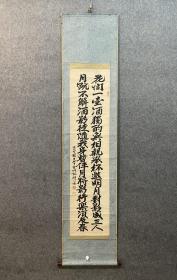 花間一壺酒獨酌無相親舉杯邀明月對影成三人
月既不解酒影徒隨我身暫伴月將影行樂須及春